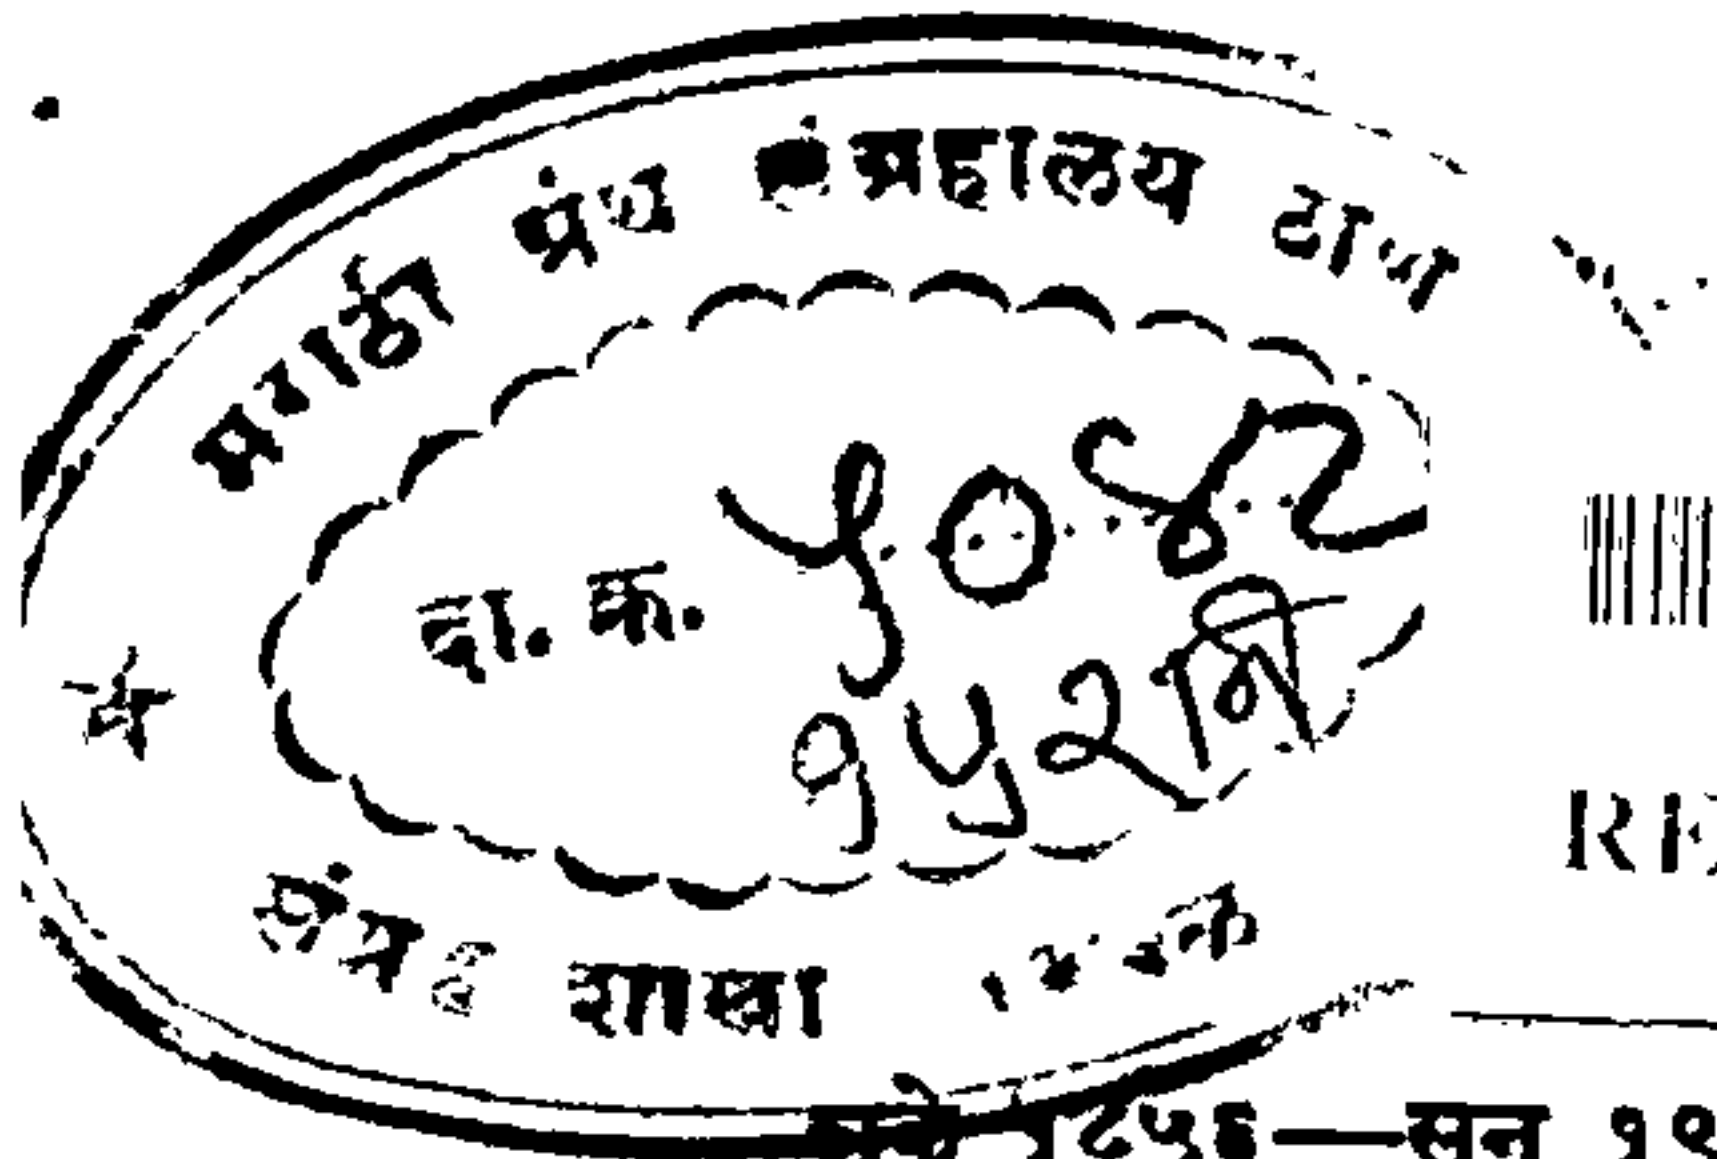 मराठी ग्रंथ संग्रहालय ठाणे
दा. क्र.
१५२
संग्रह शाखा
RE
शके १८५६—सन १९